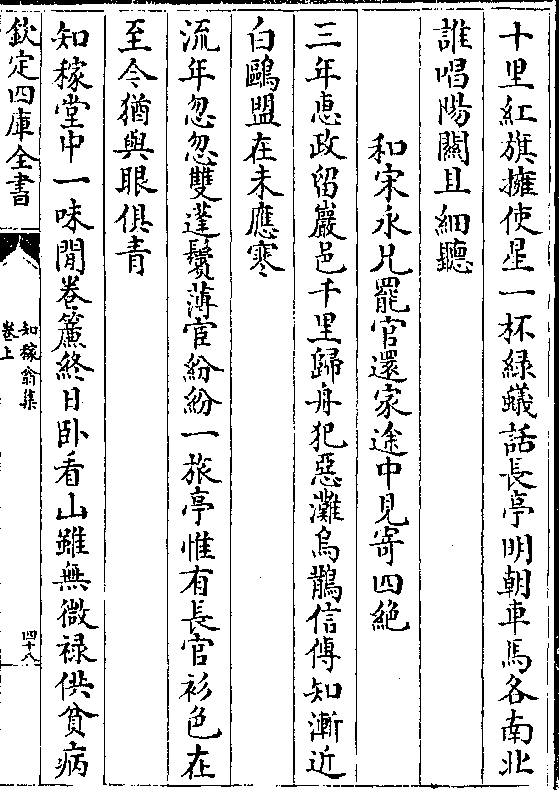 十里紅旗擁使星一杯緑蟻話長亭明朝車馬各南北
誰唱陽關且細聽
和宋永兄罷官還家途中見寄四絶
三年恵政留巖邑千里歸舟犯惡灘烏鵲信傳知漸近
白鷗盟在未應寒
流年忽忽雙蓬鬢薄宦紛紛一旅亭惟有長官衫色在
至今猶與眼俱青
知稼堂中一味閒卷簾終日卧看山雖無微禄供貧病
欽定四庫全書
知稼翁集
卷上
四十八